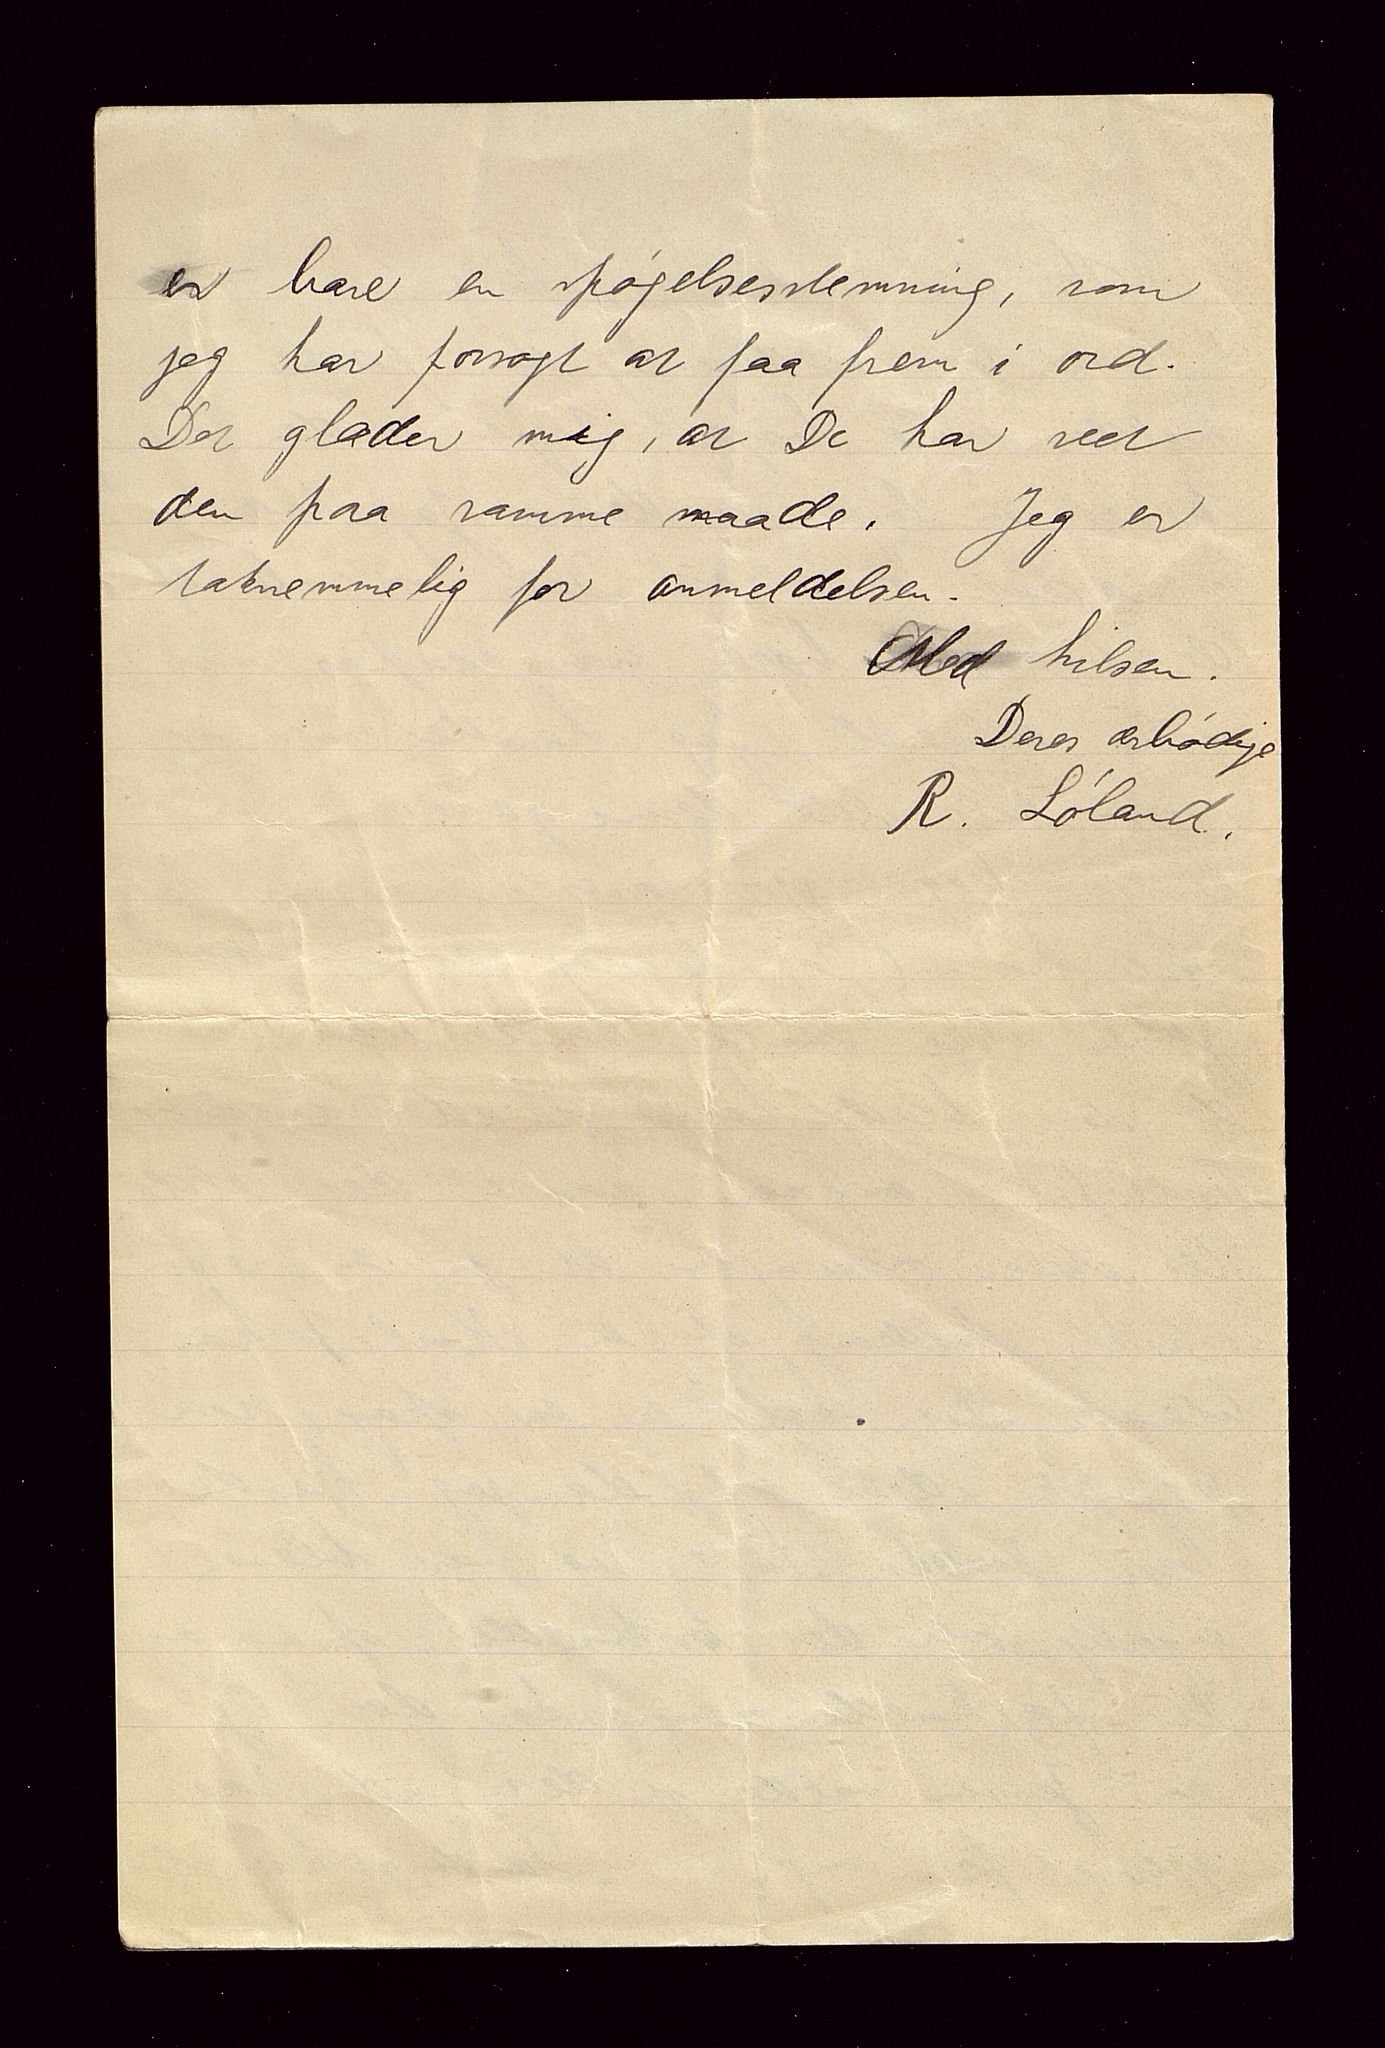 er bare en spøgelsesstemning, som
jeg har forsøgt at faa frem i ord.
Det glæder mig, at De har seet
den paa samme maade. Jeg er
taknemmelig for anmeldelsen.
Med hilsen.
Deres ærbødige
R. Løland.